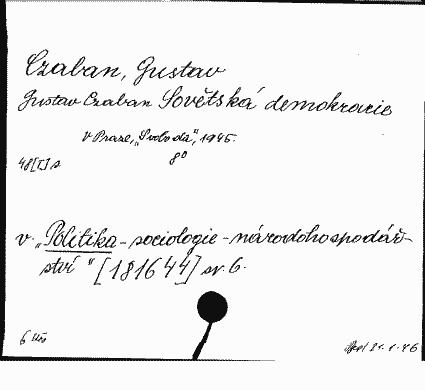 Czaban, Gustav
Gustav Czaban Sovětská demokracie
V Praze, „Svoboda“, 1945.
8°
48[I] s
v. „Politika - sociologie - národohospodář-
ství“ [181644] sv. 6.
6 Uš
21.1.46